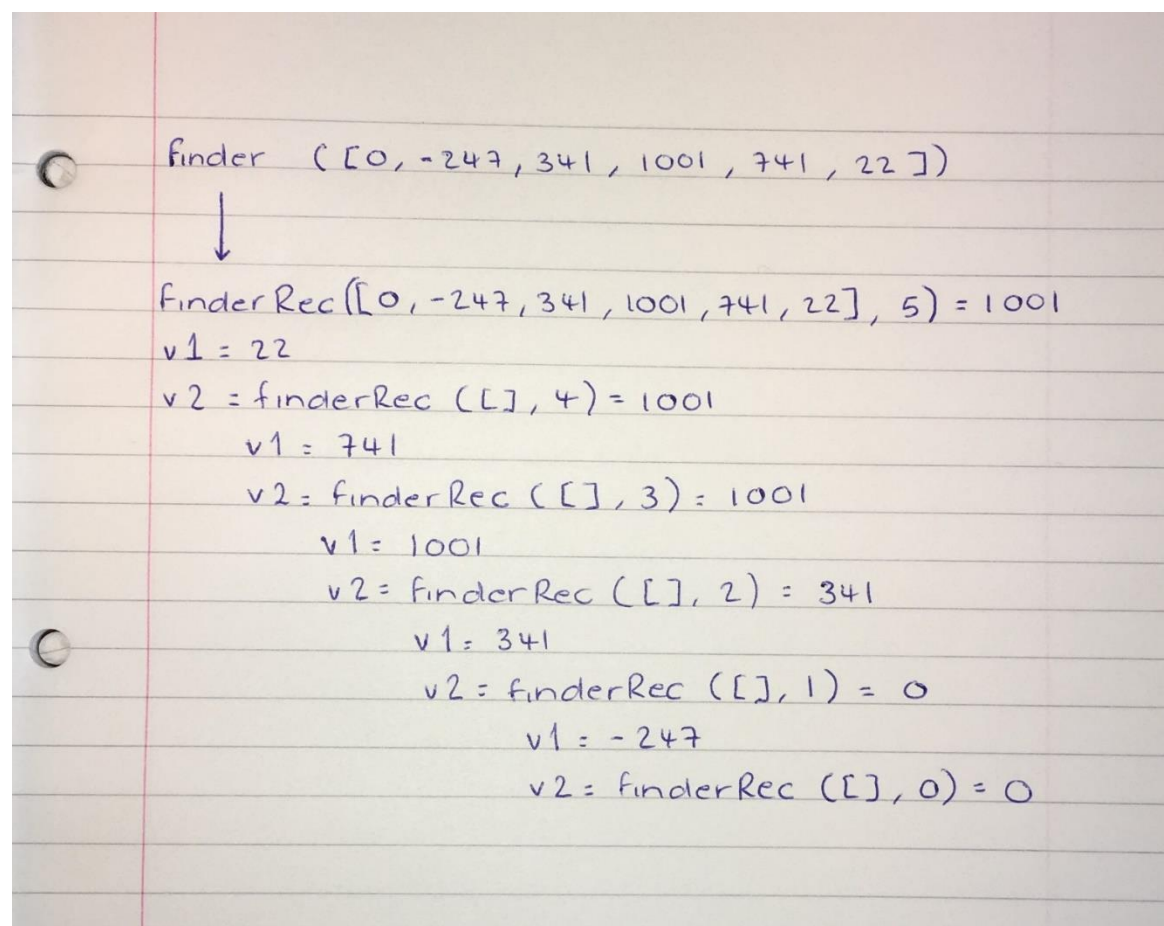 finder ([0, -247, 341, 1001, 741, 22])
finderRec([0, -247, 341, 1001, 741, 22], 5) = 1001
v1 = 22
v2 = finderRec ([], 4) = 1001
v1 = 741
v2 = finderRec ([], 3) = 1001
v1 = 1001
v2 = finderRec ([], 2) = 341
v1 = 341
v2 = finderRec ([], 1) = 0
v1 = -247
v2 = finderRec ([], 0) = 0